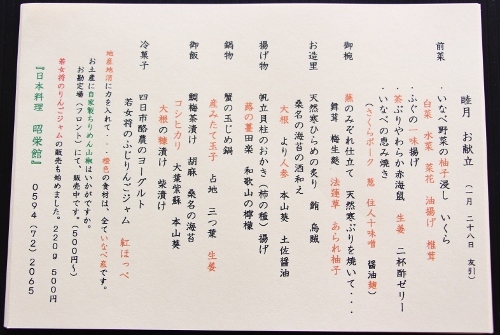 睦月 お献立 (一月二十八日 友引)
前菜 ・いなべ野菜の柚子浸し いくら
白菜 水菜 菜花 油揚げ 椎茸
・ふぐの一味揚げ
茶ぶりやわらか赤海鼠 生姜 二杯酢ゼリー
・いなべの恵み焼き
(さくらポーク 葱 住人十味噌 醤油麹)
御椀 蕪のみぞれ仕立て 天然寒ぶりを焼いて・・・
舞茸 梅生麩 法蓮草 あられ柚子
お造里 天然寒ひらめの炙り 鮪 烏賊
桑名の海苔の酒和え
大根 より人参 本山葵 土佐醤油
揚げ物 帆立貝柱のおかき(柿の種)揚げ
蕗の薹田楽 和歌山の檸檬
鍋物 蟹の玉じめ鍋
産みたて玉子 占地 三つ葉 生姜
御飯 鯛梅茶漬け 胡麻 桑名の海苔
コシヒカリ 大葉紫蘇 本山葵
大根の糠漬け 柴漬け
冷菓子 四日市酪農のヨーグルト
若女将のふじりんごジャム 紅ほっぺ
地産地消に力を入れて・・・橙色の食材は、全ていなべ産です。
お土産に自家製ちりめん山椒はいかがですか。
お勘定場(フロント)にて、販売中です。(500円~)
若女将のりんごジャムの販売も始めました。220g 500円
『日本料理 昭栄館』 0594(72)2065